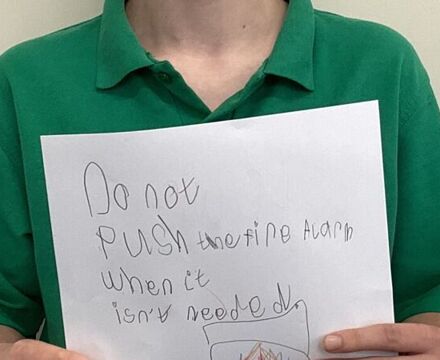 Do not
PUSh the fire Alarm
when it
isn't needed.